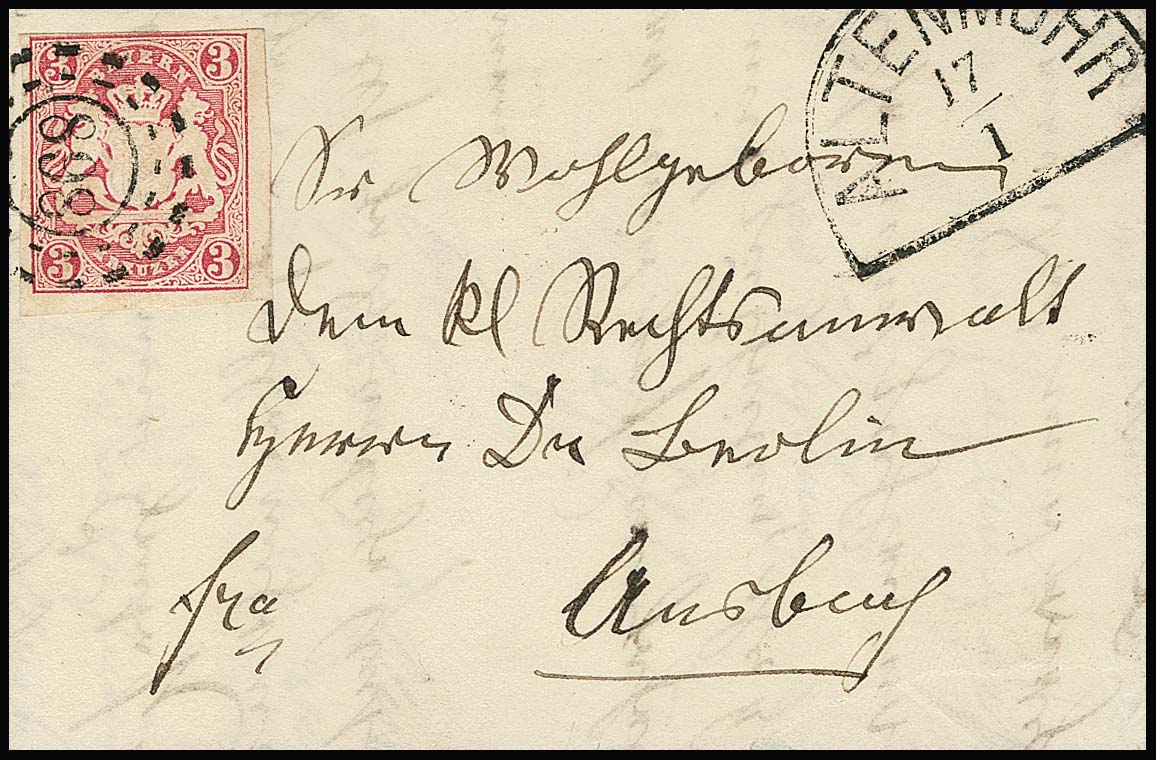 3 3
BAYERN
898
3 3
KREUZER
ALTENMUHR
17/1
Sr Wohlgeboren
dem kl Rechtsanwalt
Herrn Dr Berlin
fra
Ansbach